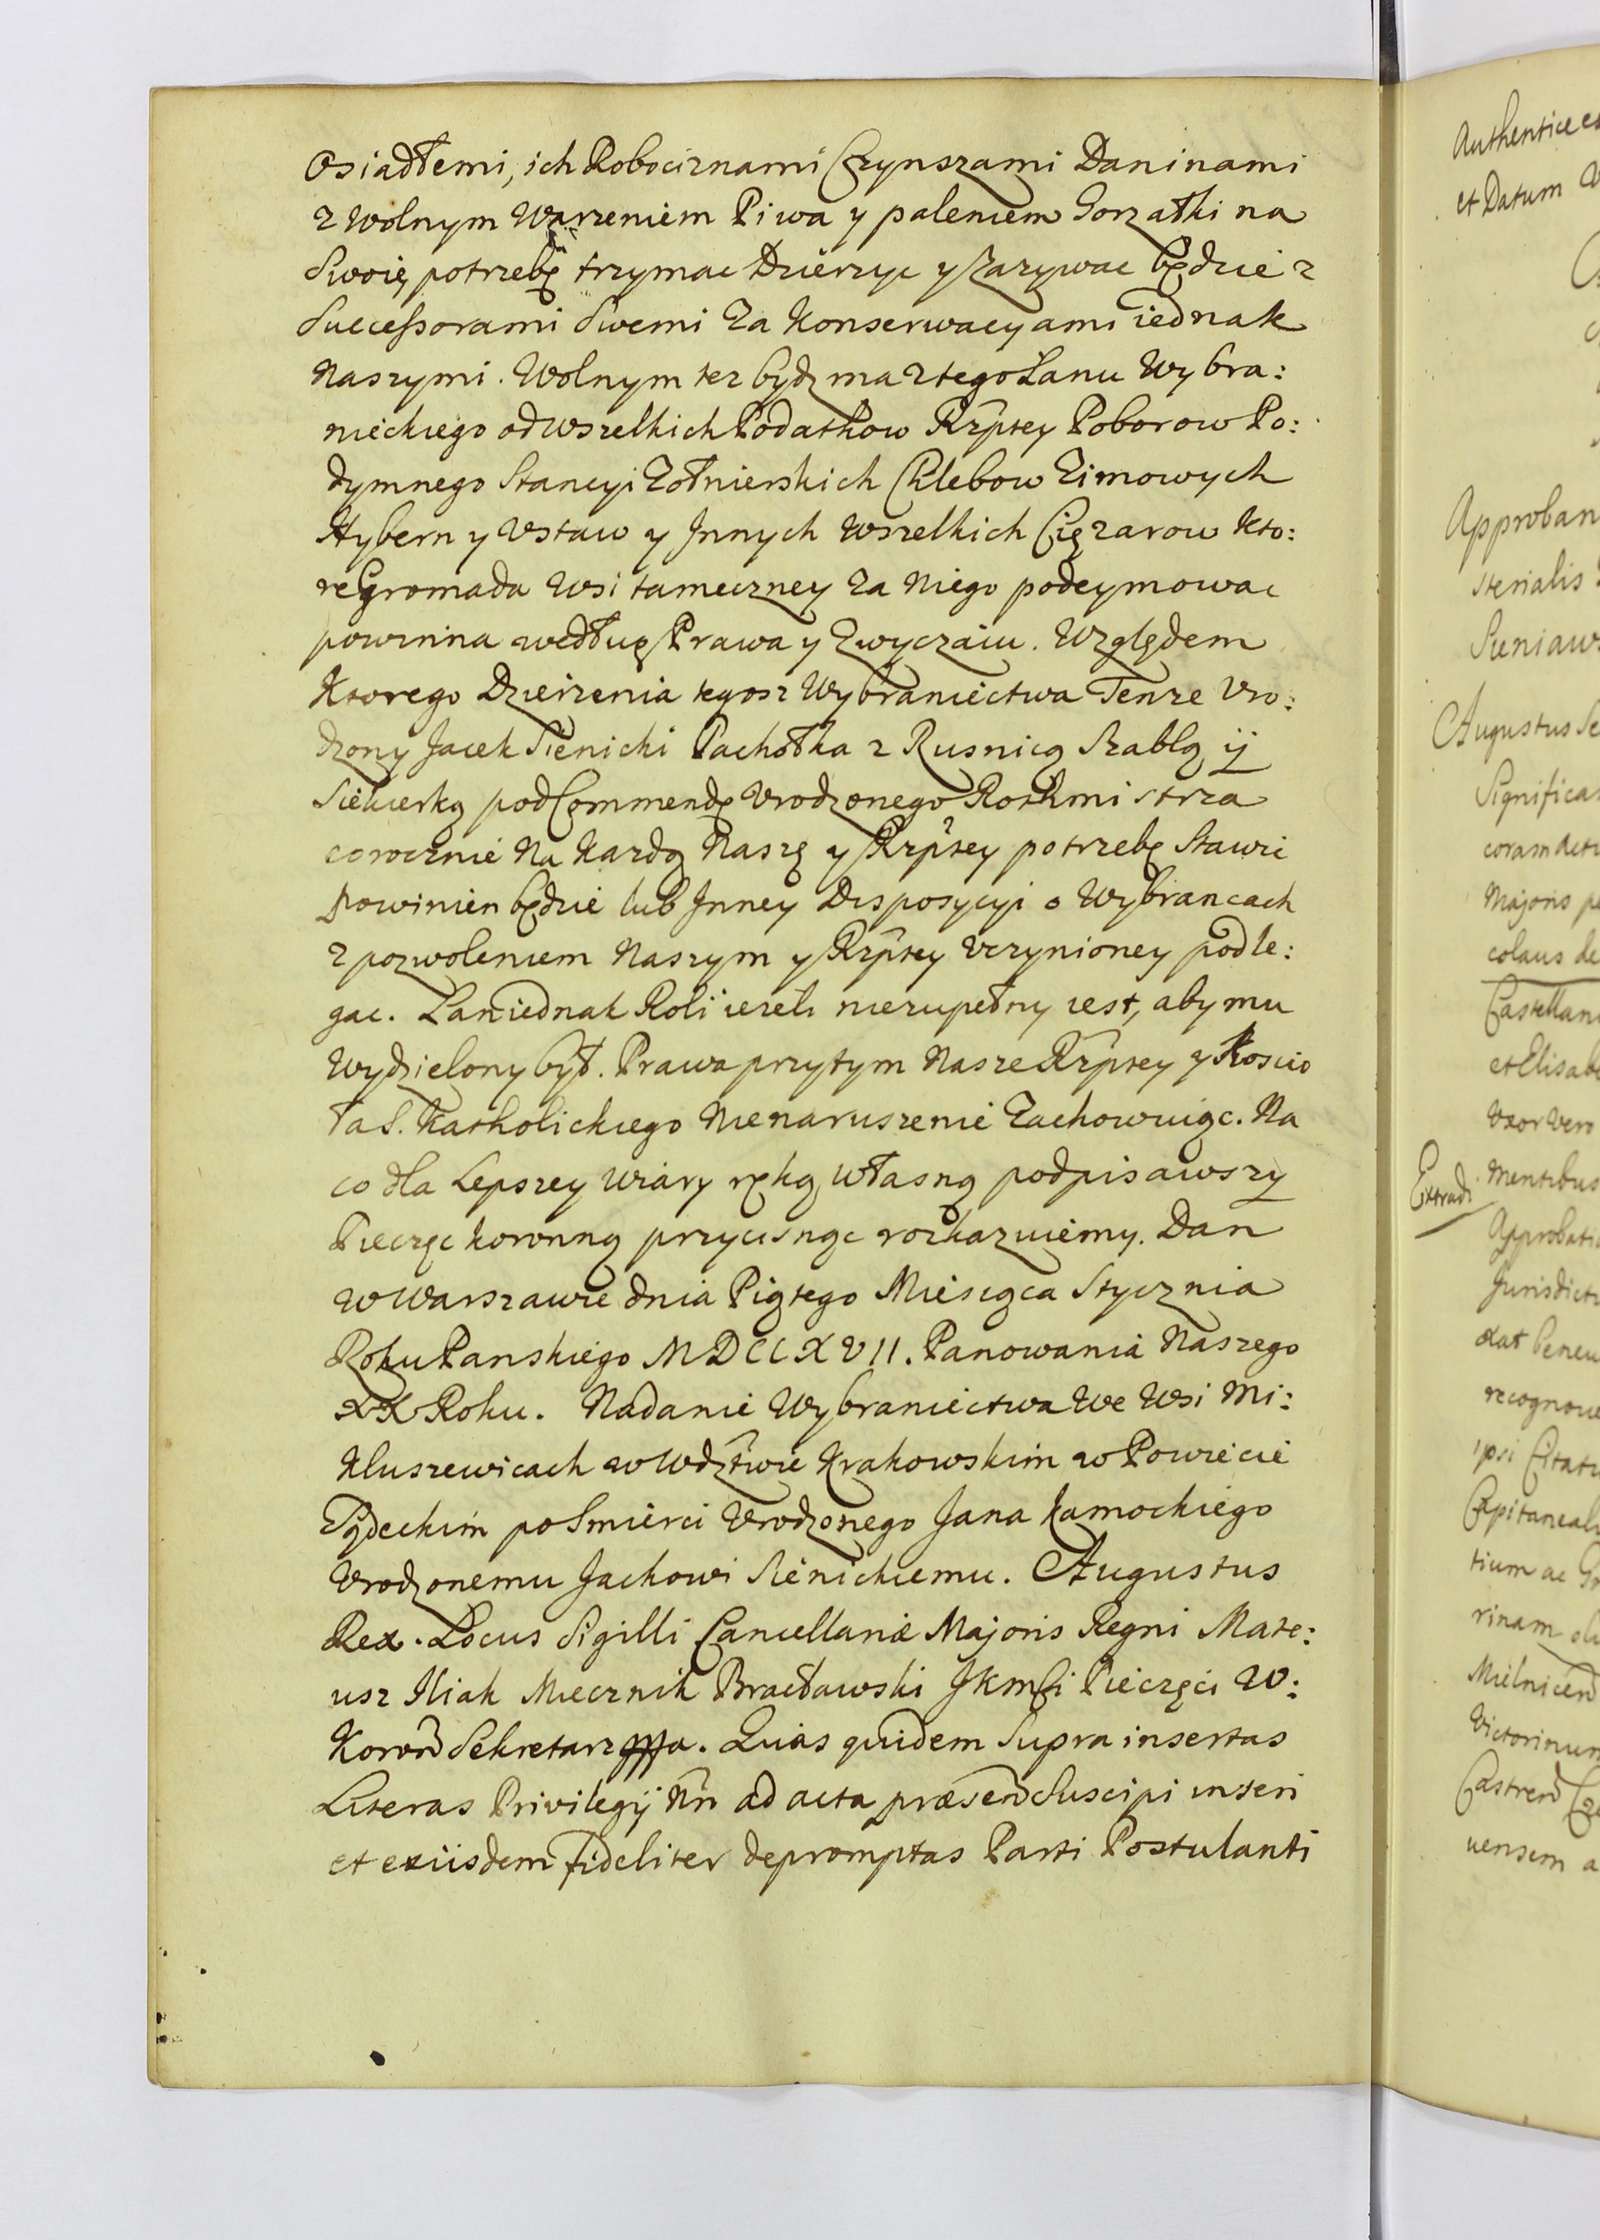 Osiadłemi, ich Robociznami Czynszami Daninami
z wolnym Warzeniem Piwa y paleniem Gorzałki na
Swoię potrzebę trzymac Dzierzyc y Zazywac będzie z
Successorami Swemi Za Konserwacyami iednak
Naszymi. Wolnym tez bydz ma z tego Łanu Wybra:
nieckiego od wszelkich Podatkow Rzptey Poborow Po:
dymnego Stancyi Zołnierskich Chlebow Zimowych
Hybern y Vstaw y Jnnych wszelkich Cięzarow Kto:
re Gromada Wsi tameczney Za Niego podeymowac
powinna według Prawa y Zwyczaiu. Względem
Ktorego Dzierzenia tegosz Wybraniectwa Tenze Vro:
dzony Jacek Sienicki Pachołka z Rusnicą Szablą ij
Siekierką pod Commendę Vrodzonego Rothmistrza
corocznie Na Kazdą Naszę y Rzptey potrzebę Stawic
powinien będzie lub Jnney Disposycyi o Wybrancach
z pozwoleniem Naszym y Rzptey Vczynioney podle:
gac. Łan iednak Roli iezeli niezupełny iest, aby mu
Wydzielony był. Prawa przytym Nasze Rzptey y Koscio
ła S. Katholickiego Nienaruszenie Zachowuiąc. Na
co dla Lepszey wiary ręką własną podpisawszy
Pieczęc koronną przycisnąc rozkazuiemy. Dan
w Warszawie dnia Piątego Miesiąca Stycznia
Roku Panskiego MDCCXVII. Panowania Naszego
XX Roku. Nadanie Wybraniectwa We Wsi Mi:
kluszewicach w Wdztwie Krakowskim w Powiecie
Sądeckim po Smierci Vrodzonego Jana Kamockiego
Vrodzonemu Jackowi Sienickiemu. Augustus
Rex. Locus Sigilli Cancellariæ Majoris Regni Mate:
usz Iliak Miecznik Bracławski JKMsci Pieczęci W:
Koron Sekretarz mpa. Quas quidem Supra insertas
Literas Privilegij Nrn ad acta præsen Suscipi inseri
et exiisdem fideliter depromptas Parti Postulanti
Authentice
et Datum
Approban
sterialis
Sieniaws
Augustus
Significa
coram
Majoris
colaus de
Castellan
et Elisab
Vxor Vero
Extradi
mentibus
Approbati
Jurisdict
recognov
ipsi Citat
Capitaneal
tium ac
rinam
Mielnicen
Victorinum
Castren
uensem a